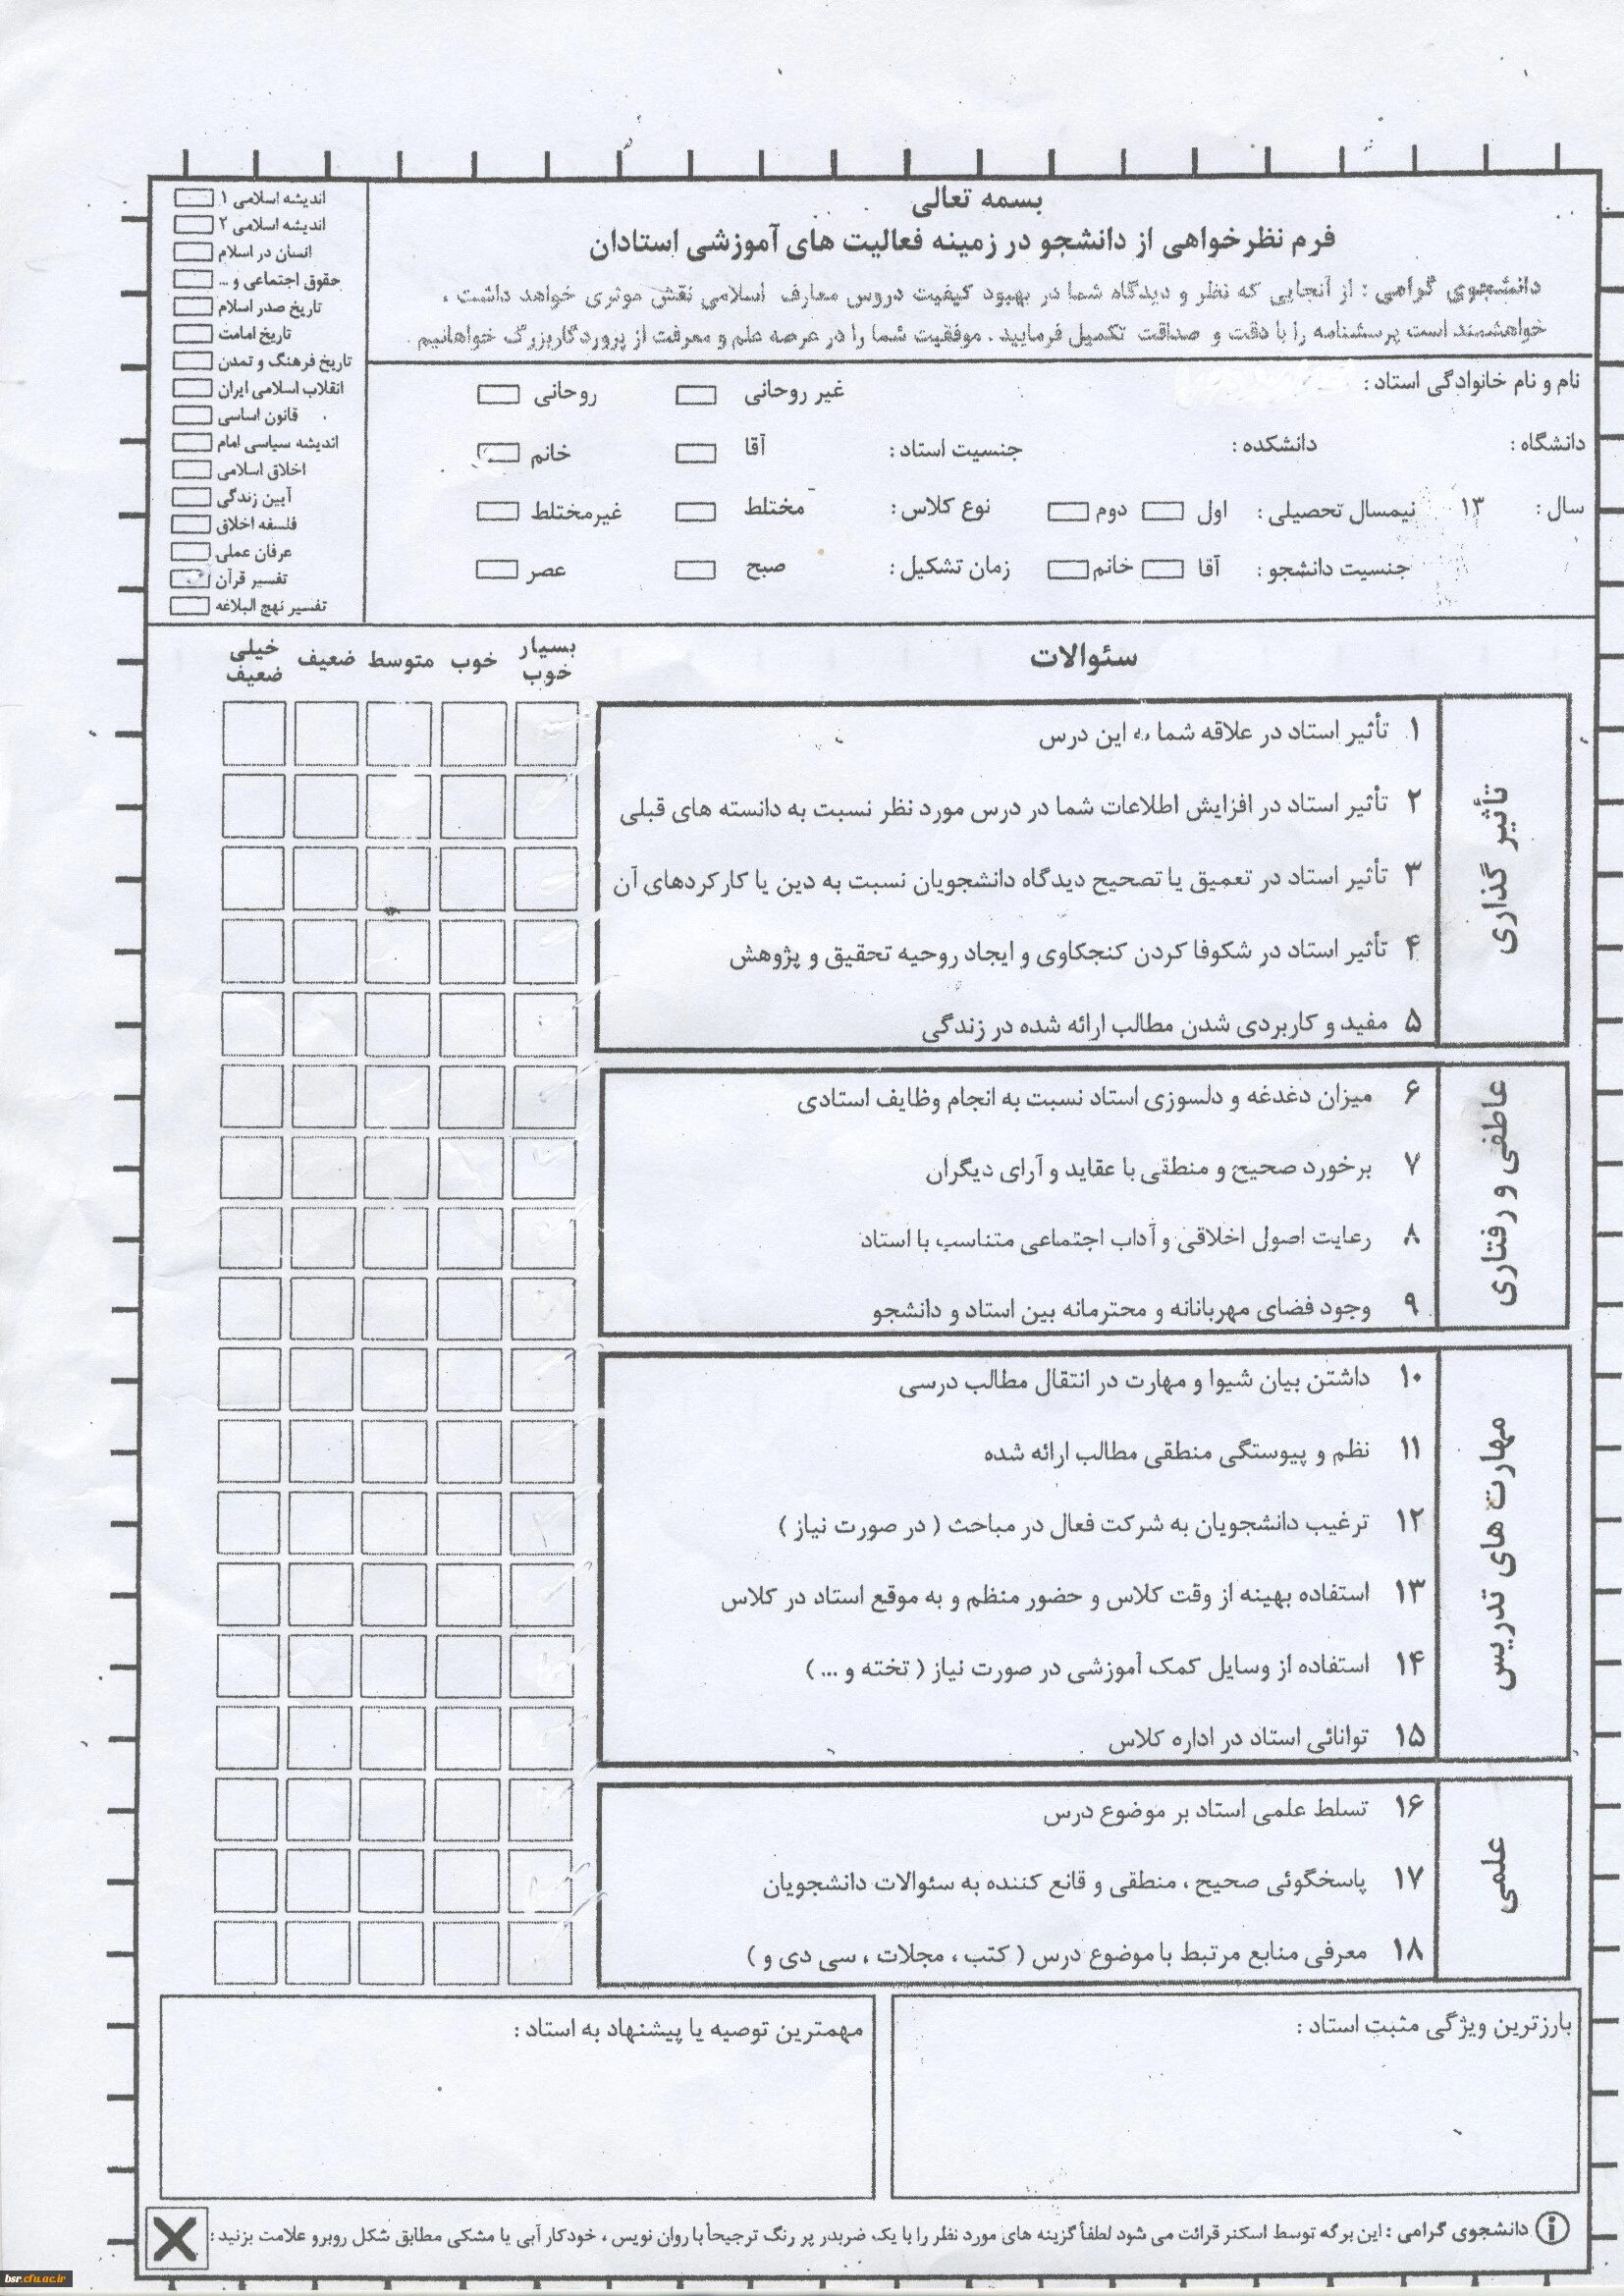 بسمه تعالی
فرم نظرخواهی از دانشجو در زمینه فعالیت های آموزشی استادان
دانشجوی گرامی : از آنجایی که نظر و دیدگاه شما در بهبود کیفیت دروس معارف اسلامی نقش موثری خواهد داشت ،
خواهشمند است پرسشنامه را با دقت و صداقت تکمیل فرمایید . موفقیت شما را در عرصه علم و معرفت از پروردگار بزرگ خواهانیم .
اندیشه اسلامی ۱
اندیشه اسلامی ۲
انسان در اسلام
حقوق اجتماعی و ...
تاریخ صدر اسلام
تاریخ امامت
تاریخ فرهنگ و تمدن
انقلاب اسلامی ایران
قانون اساسی
اندیشه سیاسی امام
اخلاق اسلامی
آیین زندگی
فلسفه اخلاق
عرفان عملی
تفسیر قرآن
تفسیر نهج البلاغه
نام و نام خانوادگی استاد : غیر روحانی روحانی
دانشگاه : دانشکده : جنسیت استاد : آقا خانم
سال : ۱۳ نیمسال تحصیلی : اول دوم نوع کلاس : مختلط غیرمختلط
جنسیت دانشجو : آقا خانم زمان تشکیل : صبح عصر
سئوالات بسیار خوب خوب متوسط ضعیف خیلی ضعیف
تأثیر گذاری
۱ تأثیر استاد در علاقه شما به این درس
۲ تأثیر استاد در افزایش اطلاعات شما در درس مورد نظر نسبت به دانسته های قبلی
۳ تأثیر استاد در تعمیق یا تصحیح دیدگاه دانشجویان نسبت به دین یا کارکردهای آن
۴ تأثیر استاد در شکوفا کردن کنجکاوی و ایجاد روحیه تحقیق و پژوهش
۵ مفید و کاربردی شدن مطالب ارائه شده در زندگی
عاطفی و رفتاری
۶ میزان دغدغه و دلسوزی استاد نسبت به انجام وظایف استادی
۷ برخورد صحیح و منطقی با عقاید و آرای دیگران
۸ رعایت اصول اخلاقی و آداب اجتماعی متناسب با استاد
۹ وجود فضای مهربانانه و محترمانه بین استاد و دانشجو
مهارت های تدریس
۱۰ داشتن بیان شیوا و مهارت در انتقال مطالب درسی
۱۱ نظم و پیوستگی منطقی مطالب ارائه شده
۱۲ ترغیب دانشجویان به شرکت فعال در مباحث ( در صورت نیاز )
۱۳ استفاده بهینه از وقت کلاس و حضور منظم و به موقع استاد در کلاس
۱۴ استفاده از وسایل کمک آموزشی در صورت نیاز ( تخته و ... )
۱۵ توانائی استاد در اداره کلاس
علمی
۱۶ تسلط علمی استاد بر موضوع درس
۱۷ پاسخگوئی صحیح ، منطقی و قانع کننده به سئوالات دانشجویان
۱۸ معرفی منابع مرتبط با موضوع درس ( کتب ، مجلات ، سی دی و )
بارزترین ویژگی مثبت استاد :
مهمترین توصیه یا پیشنهاد به استاد :
دانشجوی گرامی : این برگه توسط اسکنر قرائت می شود لطفاً گزینه های مورد نظر را با یک ضربدر پر رنگ ترجیحاً با روان نویس ، خودکار آبی یا مشکی مطابق شکل روبرو علامت بزنید :
bsr.cfu.ac.ir